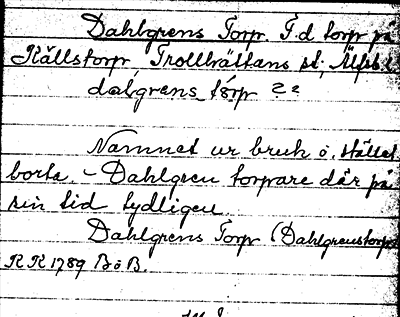 Dahlgrens Torp. F.d torp på
Källstorp, Trollhättans st, Älfsb. l.
dalgrens tórp
Namnet ur bruk o. stället
borta. – Dahlgren torpare där på
sin tid tydligen.
Dahlgrens Torp (Dahlgrenstorp
RR 1789 BoB.